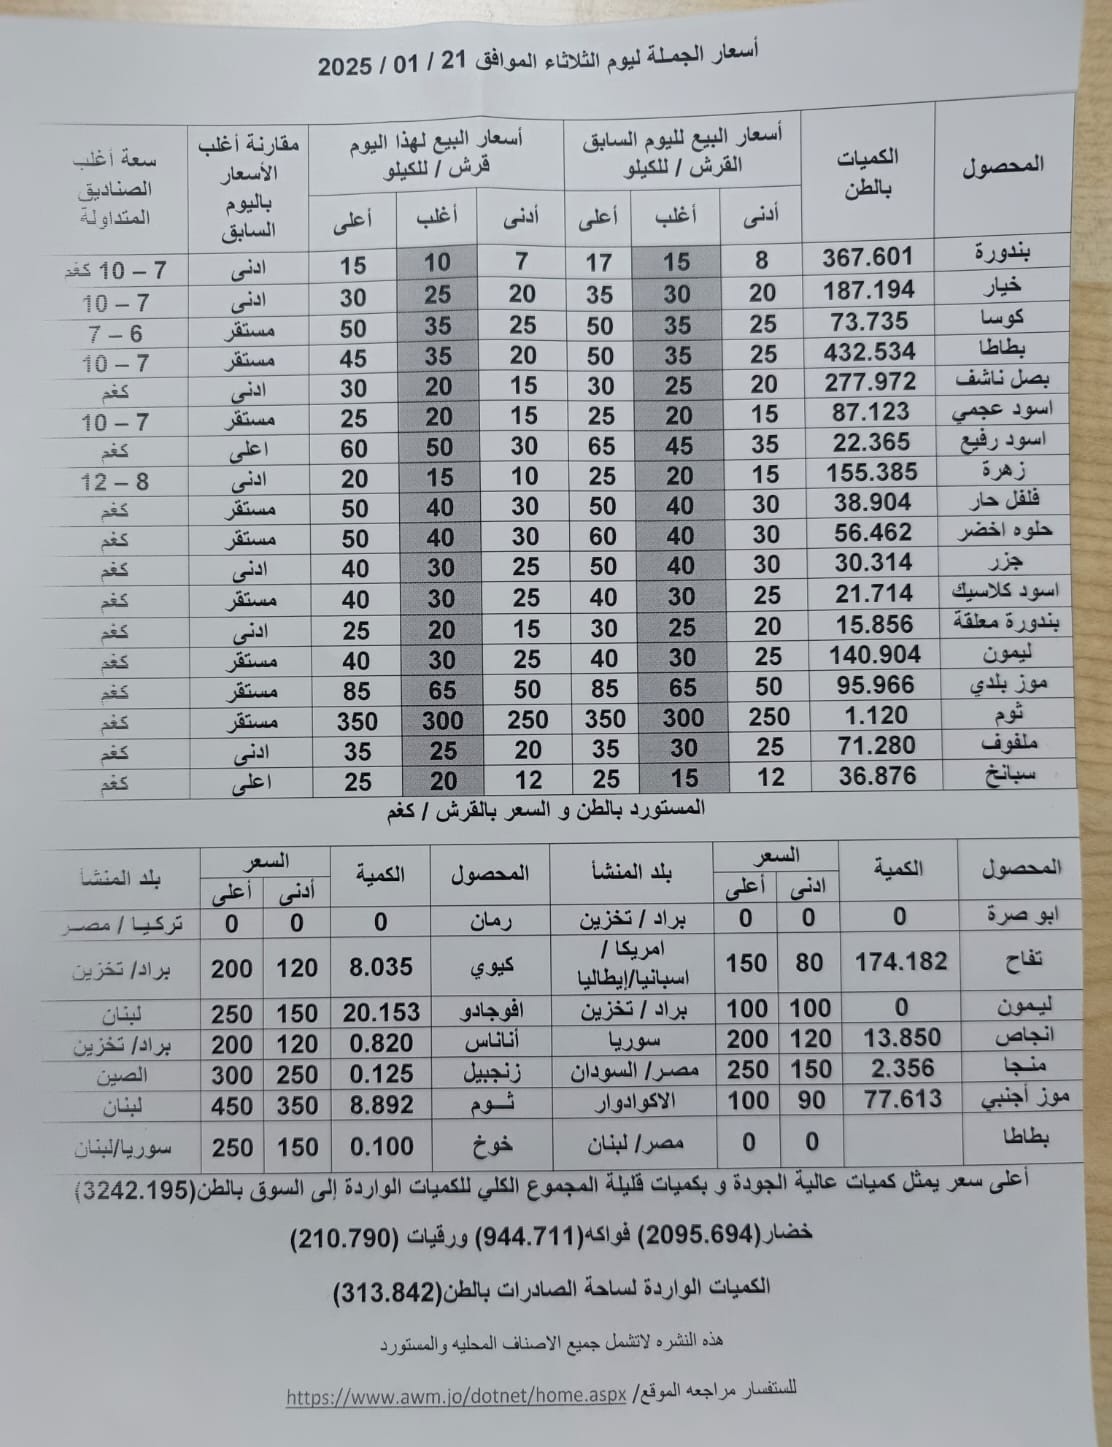 أسعار الجملة ليوم الثلاثاء الموافق 21 / 01 / 2025
المحصول الكميات بالطن أسعار البيع لليوم السابق القرش / للكيلو أسعار البيع لهذا اليوم قرش / للكيلو مقارنة أغلب الأسعار باليوم السابق سعة أغلب الصناديق المتداولة
أدنى أغلب أعلى أدنى أغلب أعلى
بندورة 367.601 8 15 17 7 10 15 ادنى 7 – 10 كغم
خيار 187.194 20 30 35 20 25 30 ادنى 7 – 10
كوسا 73.735 25 35 50 25 35 50 مستقر 6 – 7
بطاطا 432.534 25 35 50 20 35 45 مستقر 7 – 10
بصل ناشف 277.972 20 25 30 15 20 30 ادنى كغم
اسود عجمي 87.123 15 20 25 15 20 25 مستقر 7 – 10
اسود رفيع 22.365 35 45 65 30 50 60 اعلى كغم
زهرة 155.385 15 20 25 10 15 20 ادنى 8 – 12
فلفل حار 38.904 30 40 50 30 40 50 مستقر كغم
حلوه اخضر 56.462 30 40 60 30 40 50 مستقر كغم
جزر 30.314 30 40 50 25 30 40 ادنى كغم
اسود كلاسيك 21.714 25 30 40 25 30 40 مستقر كغم
بندورة معلقة 15.856 20 25 30 15 20 25 ادنى كغم
ليمون 140.904 25 30 40 25 30 40 مستقر كغم
موز بلدي 95.966 50 65 85 50 65 85 مستقر كغم
ثوم 1.120 250 300 350 250 300 350 مستقر كغم
ملفوف 71.280 25 30 35 20 25 35 ادنى كغم
سبانخ 36.876 12 15 25 12 20 25 اعلى كغم
المستورد بالطن و السعر بالقرش / كغم
المحصول الكمية السعر بلد المنشأ المحصول الكمية السعر بلد المنشأ
ادنى أعلى أدنى أعلى
ابو صرة 0 0 0 براد / تخزين رمان 0 0 0 تركيا / مصر
تفاح 174.182 80 150 امريكا / اسبانيا/إيطاليا كيوي 8.035 120 200 براد/ تخزين
ليمون 0 100 100 براد / تخزين افوجادو 20.153 150 250 لبنان
انجاص 13.850 120 200 سوريا أناناس 0.820 120 200 براد/ تخزين
منجا 2.356 150 250 مصر/ السودان زنجبيل 0.125 250 300 الصين
موز أجنبي 77.613 90 100 الاكوادوار ثـوم 8.892 350 450 لبنان
بطاطا 0 0 مصر/ لبنان خوخ 0.100 150 250 سوريا/لبنان
أعلى سعر يمثل كميات عالية الجودة و بكميات قليلة المجموع الكلي للكميات الواردة إلى السوق بالطن(3242.195)
خضار(2095.694) فواكه(944.711) ورقيات (210.790)
الكميات الواردة لساحة الصادرات بالطن(313.842)
هذه النشره لاتشمل جميع الاصناف المحليه والمستورد
للستفسار مراجعه الموقع/ https://www.awm.jo/dotnet/home.aspx